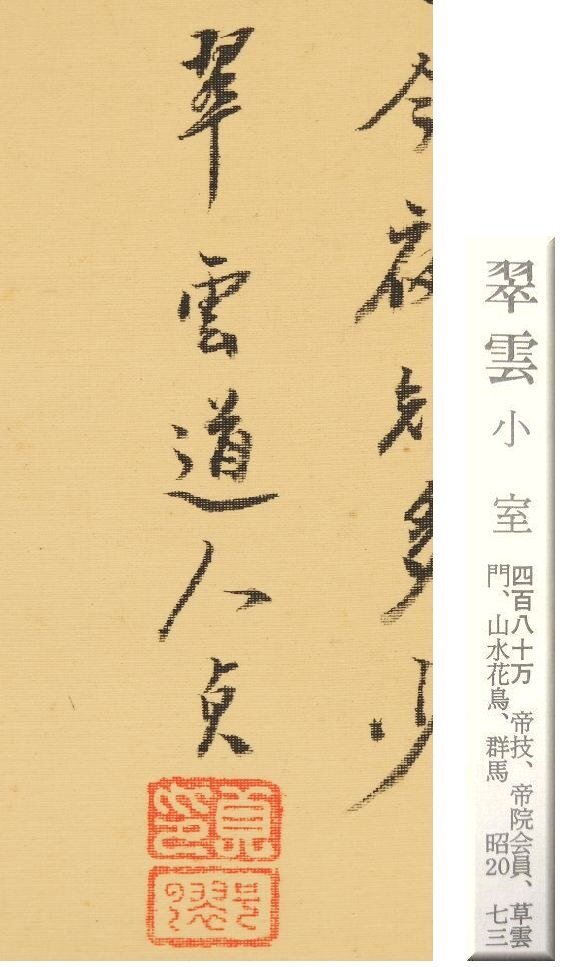 今夜知多少
翠雲道人貞
翠雲 小室
四百八十万 帝技、帝院会員、草雲
門、山水花鳥、群馬 昭20 七三